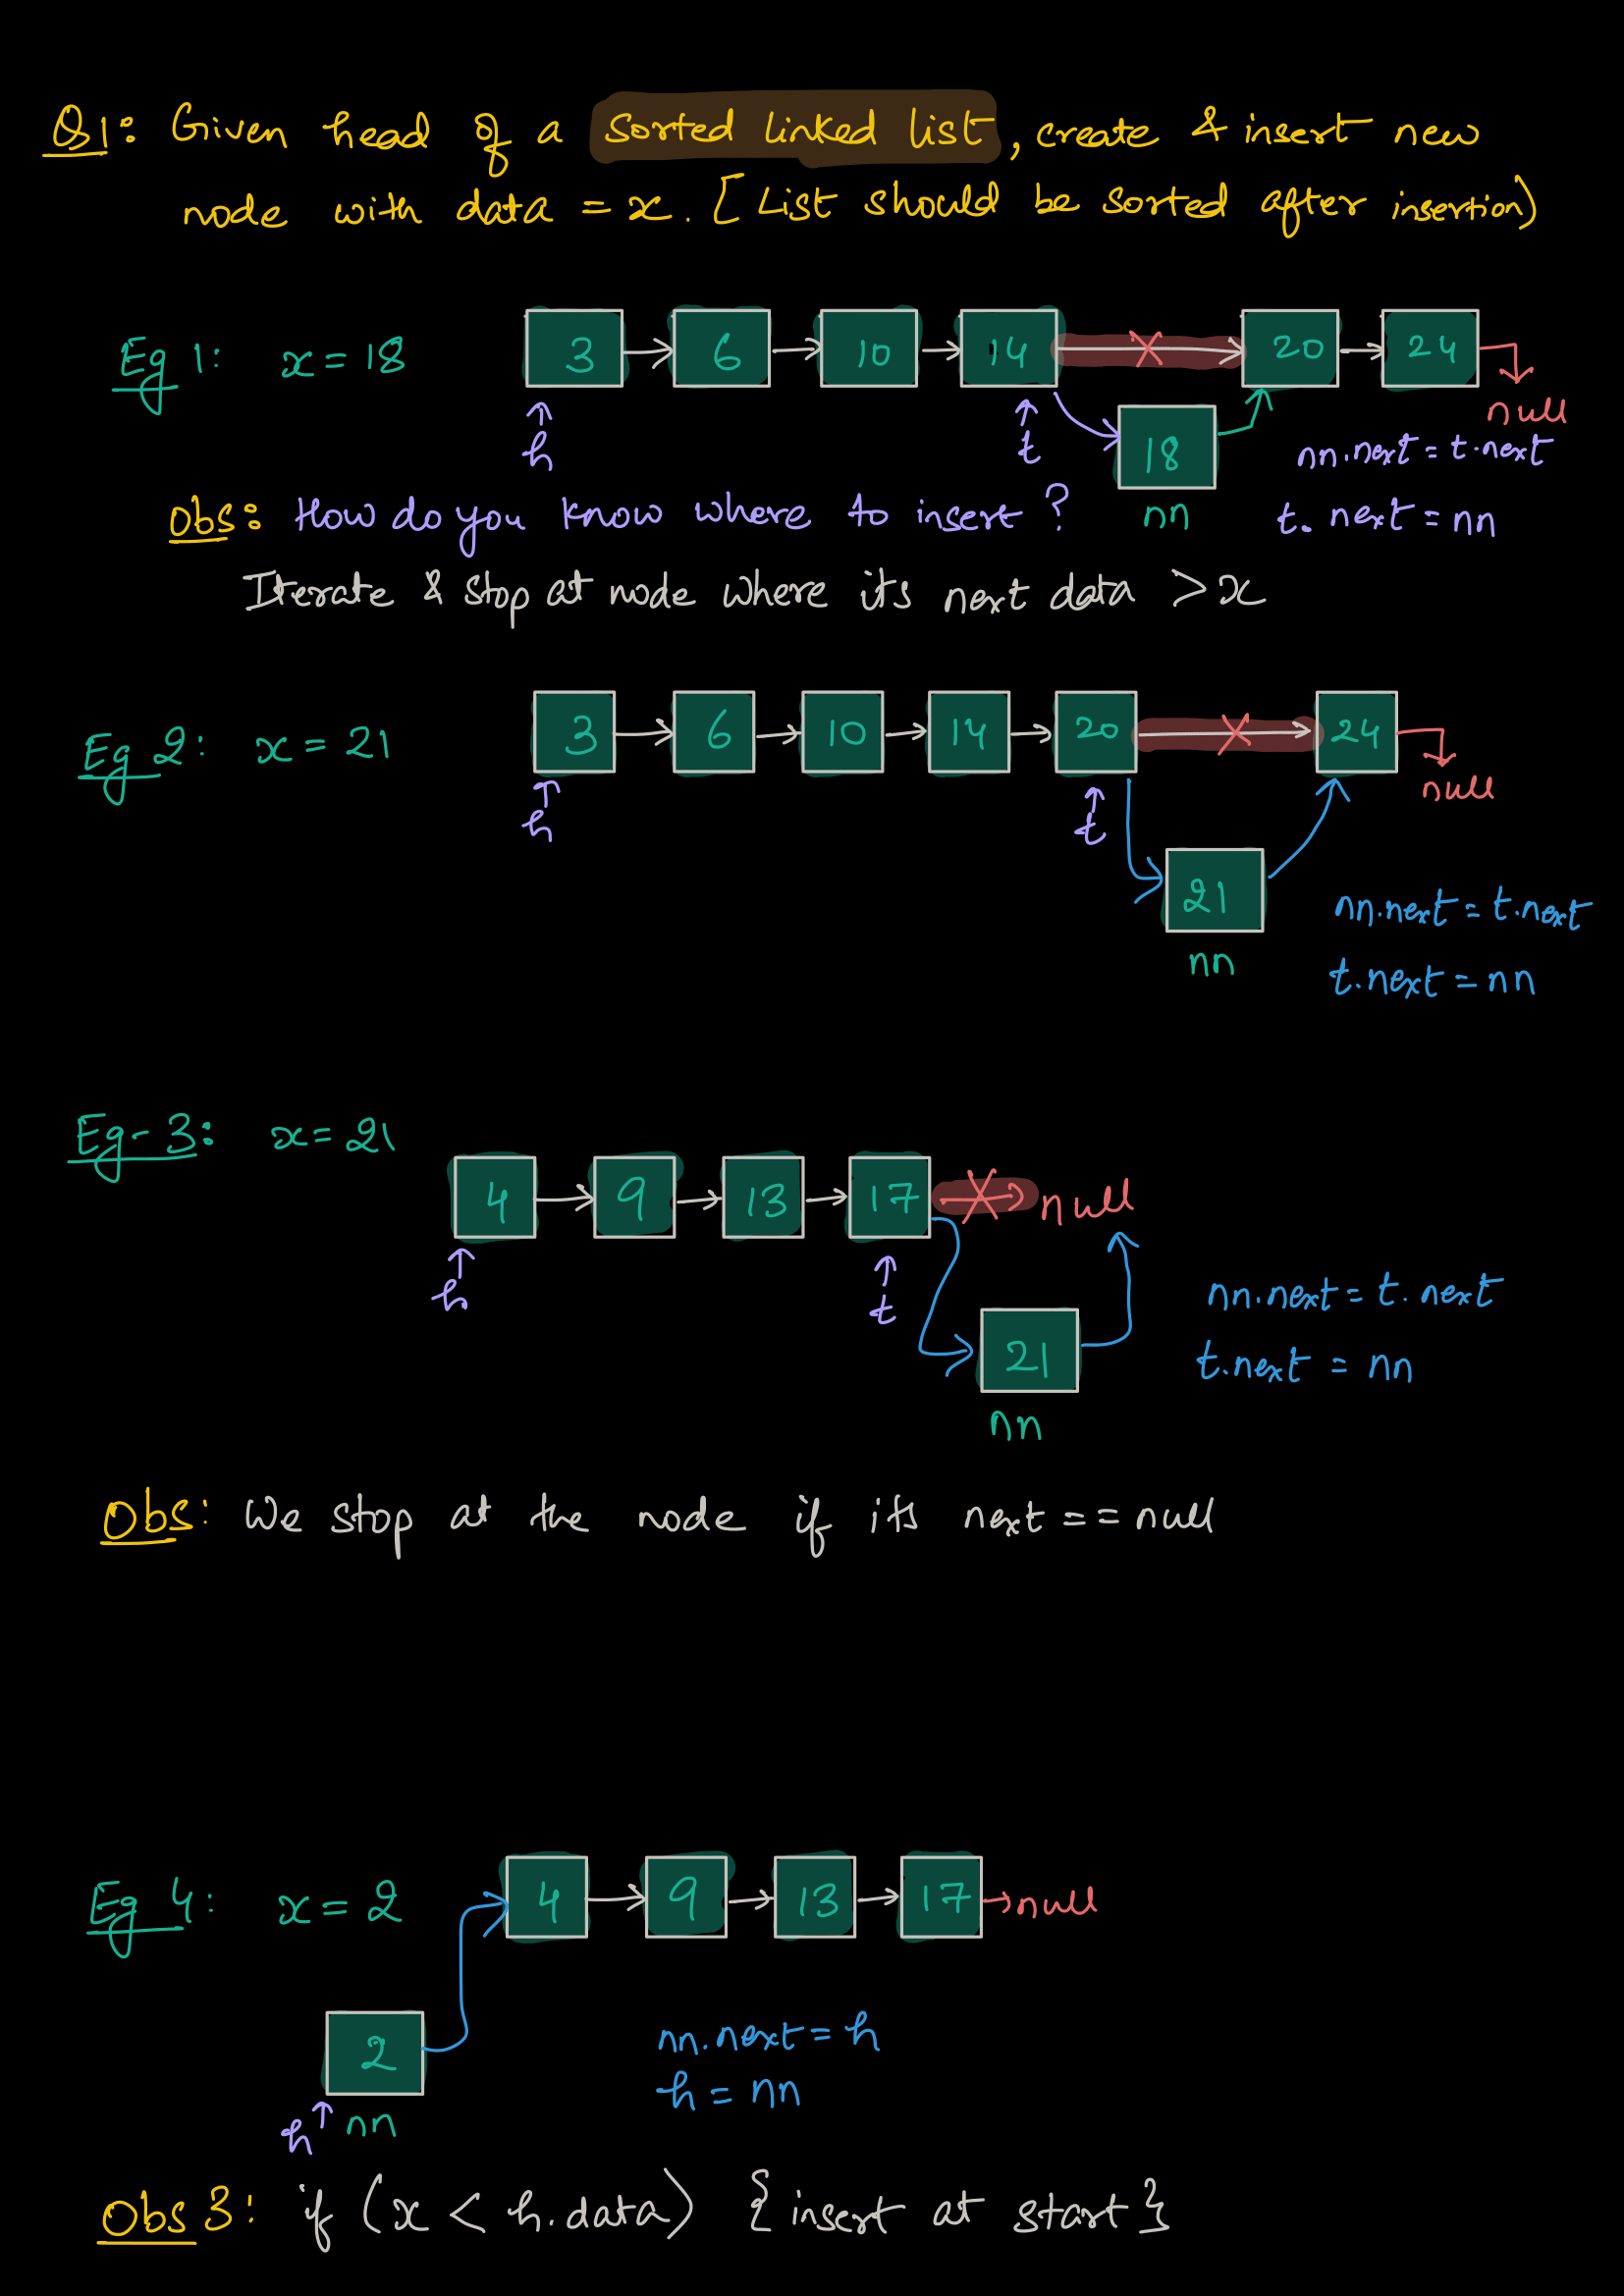 Q1: Given head of a sorted linked list, create & insert new
node with data = x. [List should be sorted after insertion)
Eg 1: x = 18
3 → 6 → 10 → 14 → 20 → 24
null
h
t
18
nn
nn.next = t.next
t.next = nn
Obs: How do you know where to insert?
Iterate & stop at node where its next data > x
Eg 2: x = 21
3 → 6 → 10 → 14 → 20 → 24
null
h
t
21
nn
nn.next = t.next
t.next = nn
Eg-3: x = 21
4 → 9 → 13 → 17 → null
h
t
21
nn
nn.next = t.next
t.next = nn
Obs: We stop at the node if its next == null
Eg 4: x = 2
4 → 9 → 13 → 17 → null
2
h nn
nn.next = h
h = nn
Obs 3: if (x < h.data) {insert at start}